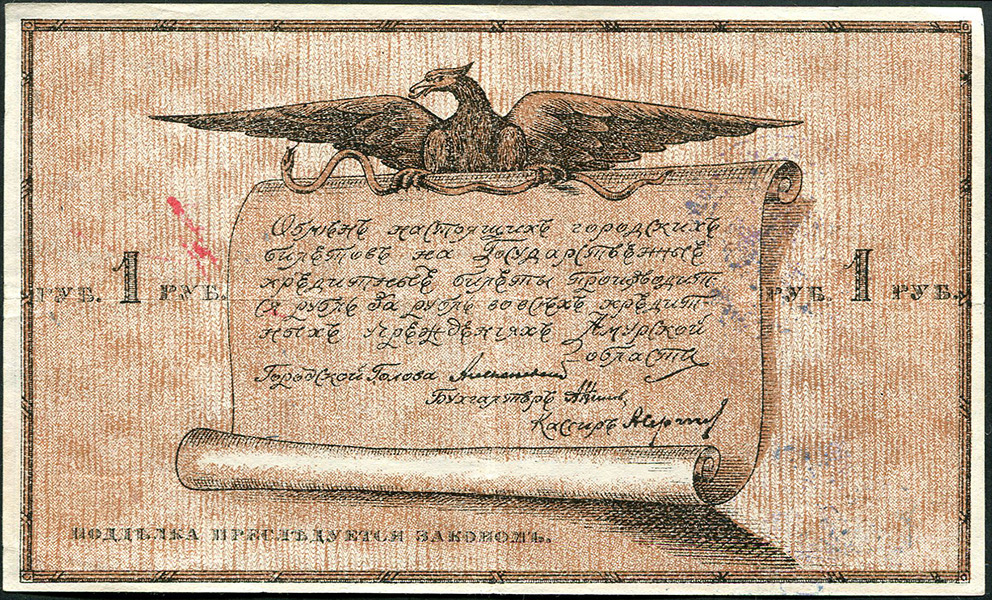 Обмѣнъ настоящихъ городскихъ
билѣтовъ на Государствѣнные
крѣдитные билѣты производит
ся рубль за рубль во всѣхъ крѣдит
ныхъ учрежденіяхъ Амурской
области
РУБ. 1 РУБ.
РУБ. 1 РУБ.
Городской Голова
Бухгалтѣръ
Кассиръ
ПОДДѢЛКА ПРЕСЛѢДУЕТСЯ ЗАКОНОМЪ.